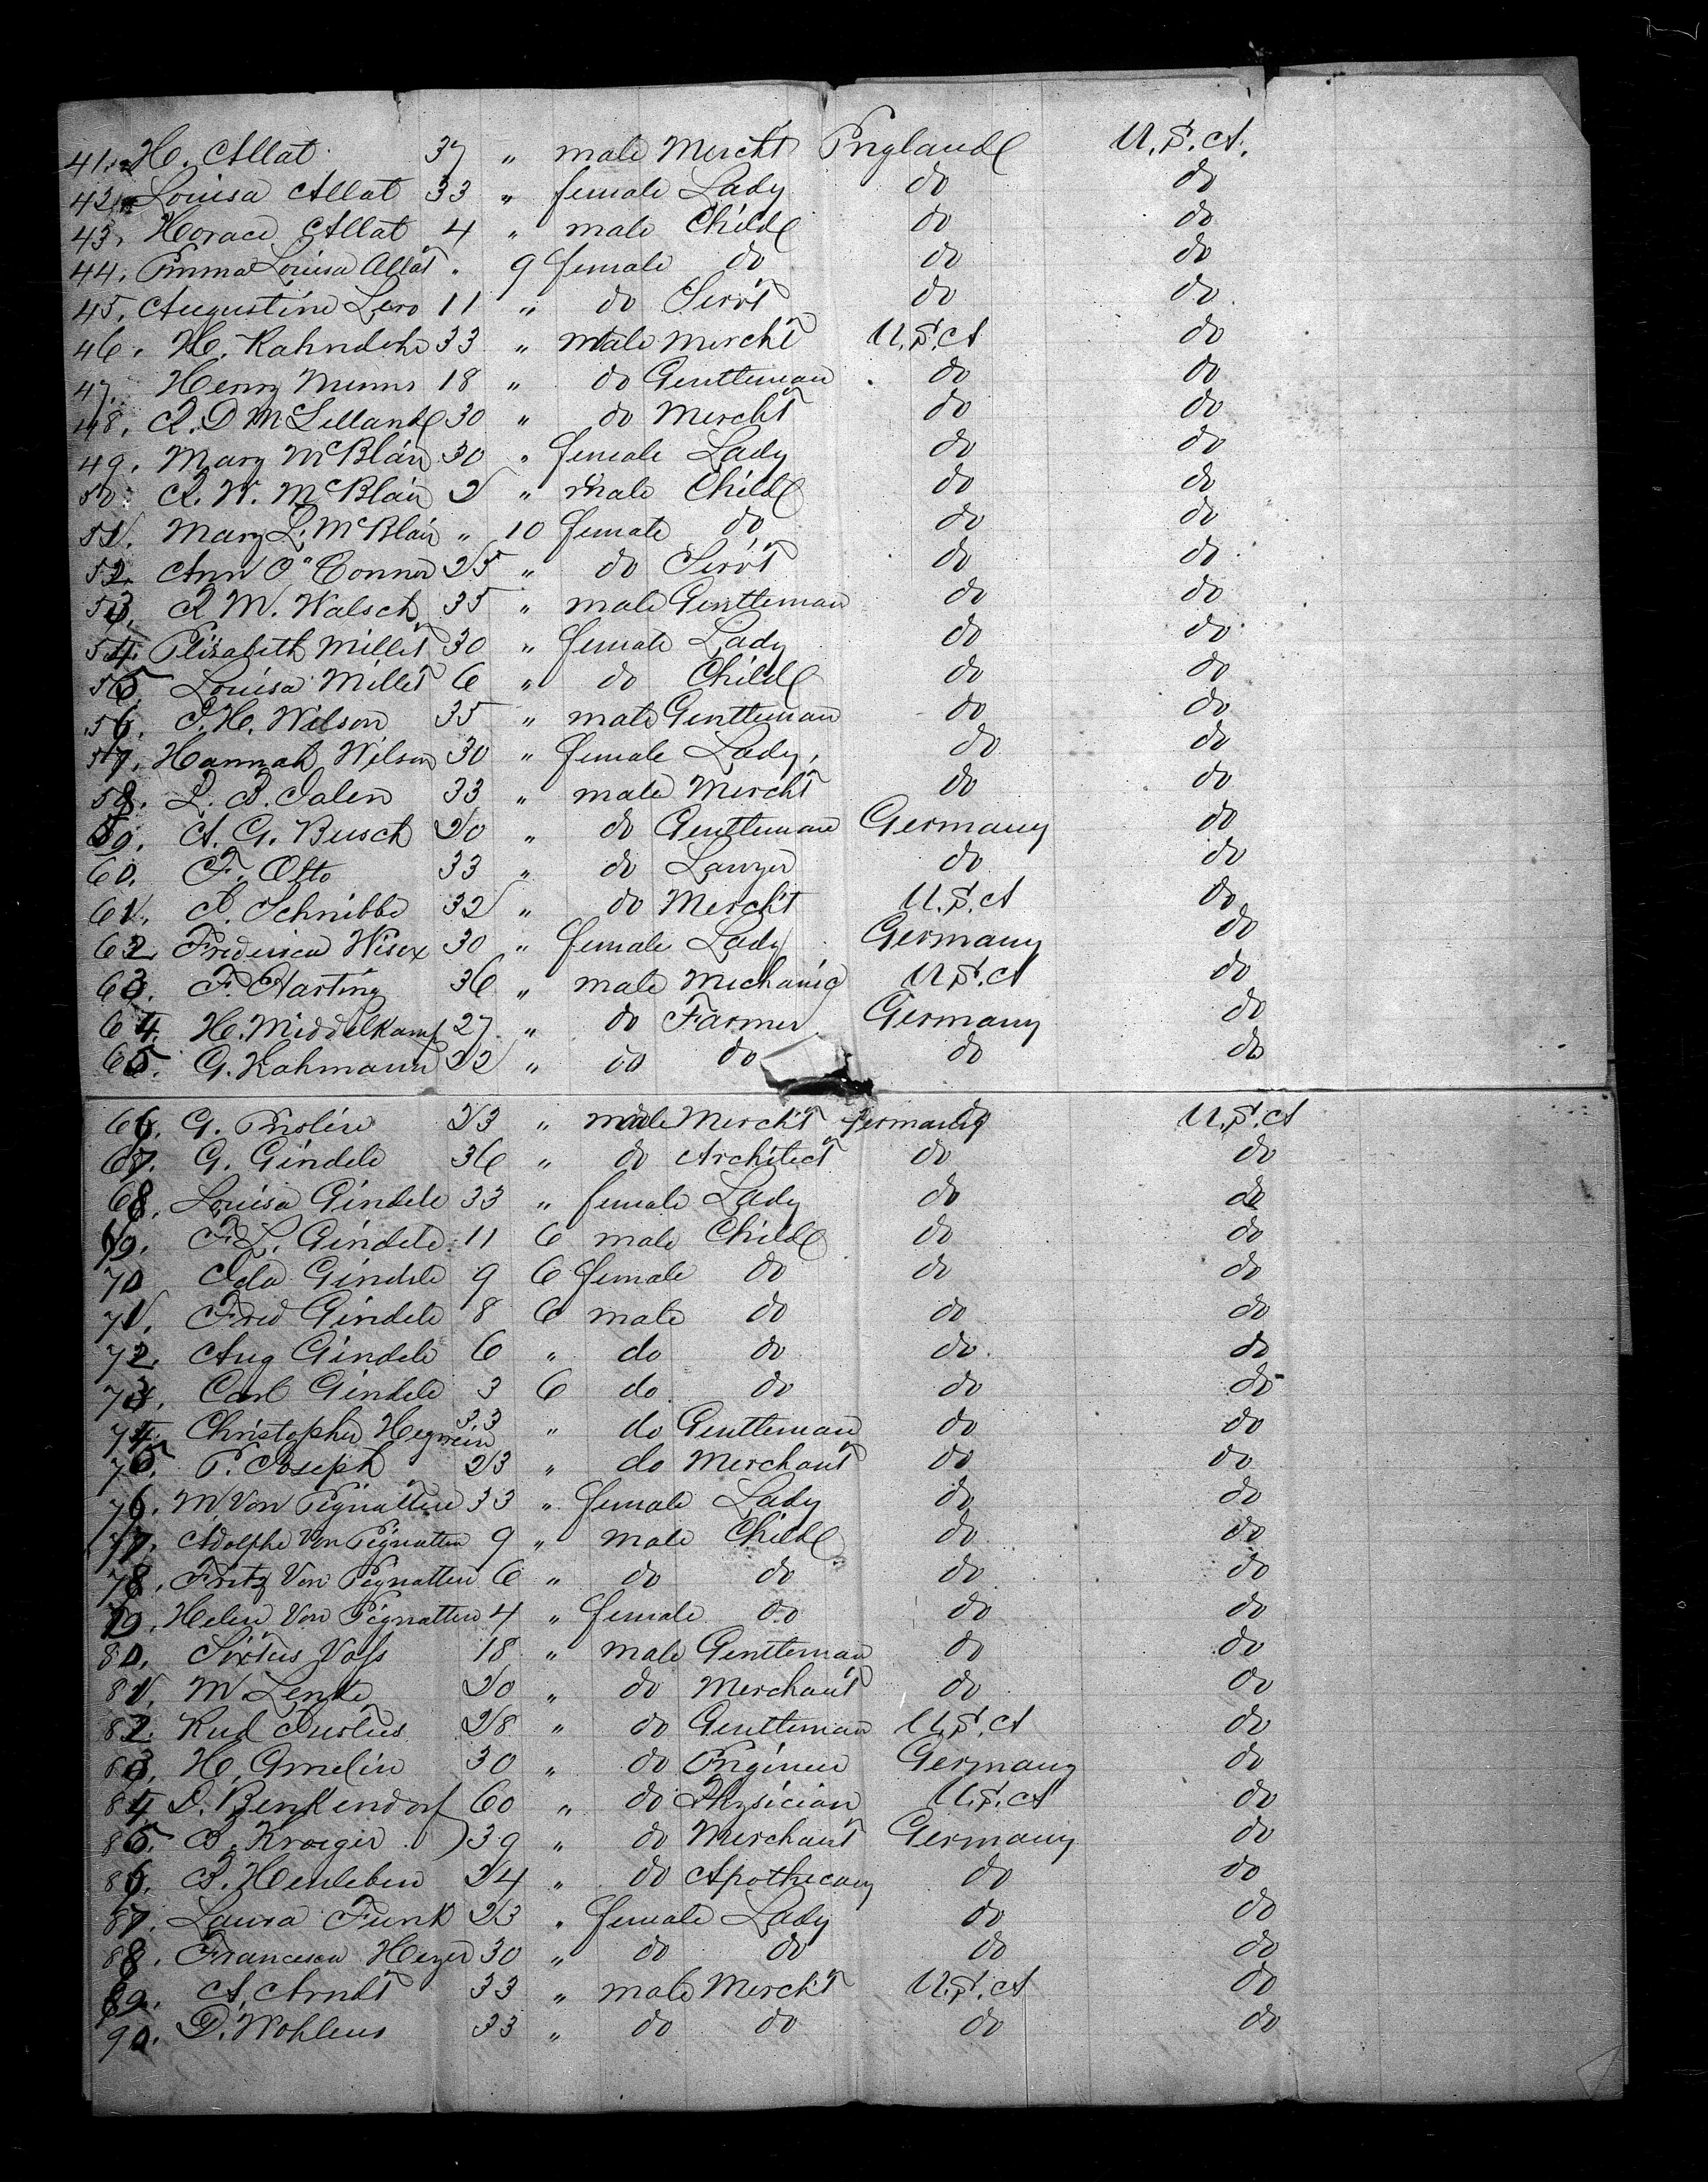 41. H. Allat 37 " male Mercht England U.S.A.
42. Louisa Allat 33 " female Lady do do
43. Horace Allat 4 " male Child do do
44. Emma Louisa Allat " 9 female do do do
45. Augustine Lero 11 " do Servt do do
46. H. Rahndohr 33 " male Mercht U.S.A do
47. Henry Munns 18 " do Gentleman do do
48. R. D McLelland 30 " do Mercht do do
49. Mary McBlair 30 " female Lady do do
50. R. W. McBlair 2 " male Child do do
51. Mary L. McBlair " 10 female do do do
52. Ann O"Connor 25 " do Servt do do
53. R M. Walsch 35 " male Gentleman do do
54. Elisabeth Millet 30 " female Lady do do
55. Louisa Millet 6 " do Child do do
56. J. H. Wilson 35 " male Gentleman do do
57. Hannah Wilson 30 " female Lady, do do
58. L. B. Jalen 33 " male Mercht do do
59. A. G. Busch 20 " do Gentleman Germany do
60. F. Otto 33 " do Lawyer do do
61. J. Schnibbe 32 " do Mercht U.S.A do
62. Frederica 30 " female Lady Germany do
63. F. Harting 36 " male Mechanic U.S.A do
64. H. Middelkamp 27 " do Farmer Germany do
65. G. Kahmann 22 " do do do do
66. G. Enslin 23 " male Mercht Germany U.S.A
67. G. Gindele 36 " do Architect do do
68. Louisa Gindele 33 " female Lady do do
69. F. L. Gindele 11 6 male Child do do
70 Ida Gindele 9 6 female do do do
71. Fred Gindele 8 6 male do do do
72. Aug Gindele 6 " do do do do
73. Carl Gindele 3 6 do do do do
74. Christopher Hegwein 33 " do Gentleman do do
75. P. Joseph 23 " do Merchant do do
76. M. Von Pignatten 33 " female Lady do do
77. Adolphe Von Pignatten 9 " male Child do do
78. Fritz Von Pignatten 6 " do do do do
79. Helen Von Pignatten 4 " female do do do
80. Sixtus Voss 18 " male Gentleman do do
81. M Lenke 20 " do Merchant do do
82. Rud Justus 28 " do Gentleman U.S.A do
83. H. Gmelin 30 " do Engineer Germany do
84 D. Benkendorf 60 " do Physician U.S.A do
85. B. Kroeger 39 " do Merchant Germany do
86. B. Henleben 24 " do Apothecary do do
87. Laura Funk 23 " female Lady do do
88. Francesca Heyer 30 " do do do do
89. A. Arndt 33 " male Mercht U.S.A do
90. D. Wohlens 33 " do do do do